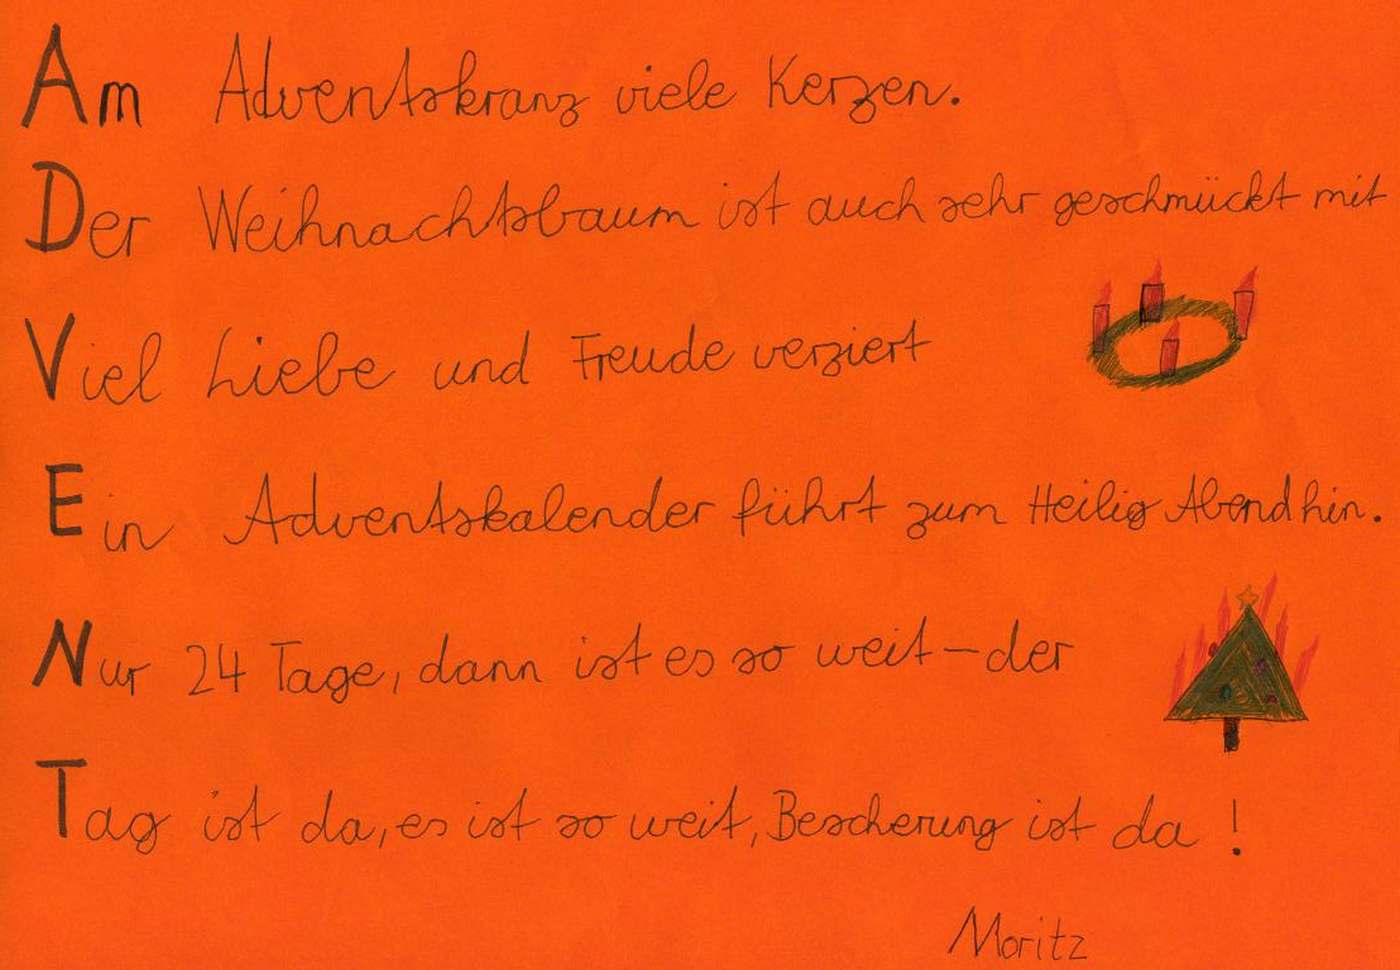 Am Adventskranz viele Kerzen.
Der Weihnachtsbaum ist auch sehr geschmückt mit
Viel Liebe und Freude verziert
Ein Adventskalender führt zum Heilig Abend hin.
Nur 24 Tage, dann ist es so weit - der
Tag ist da, es ist so weit, Bescherung ist da!
Moritz